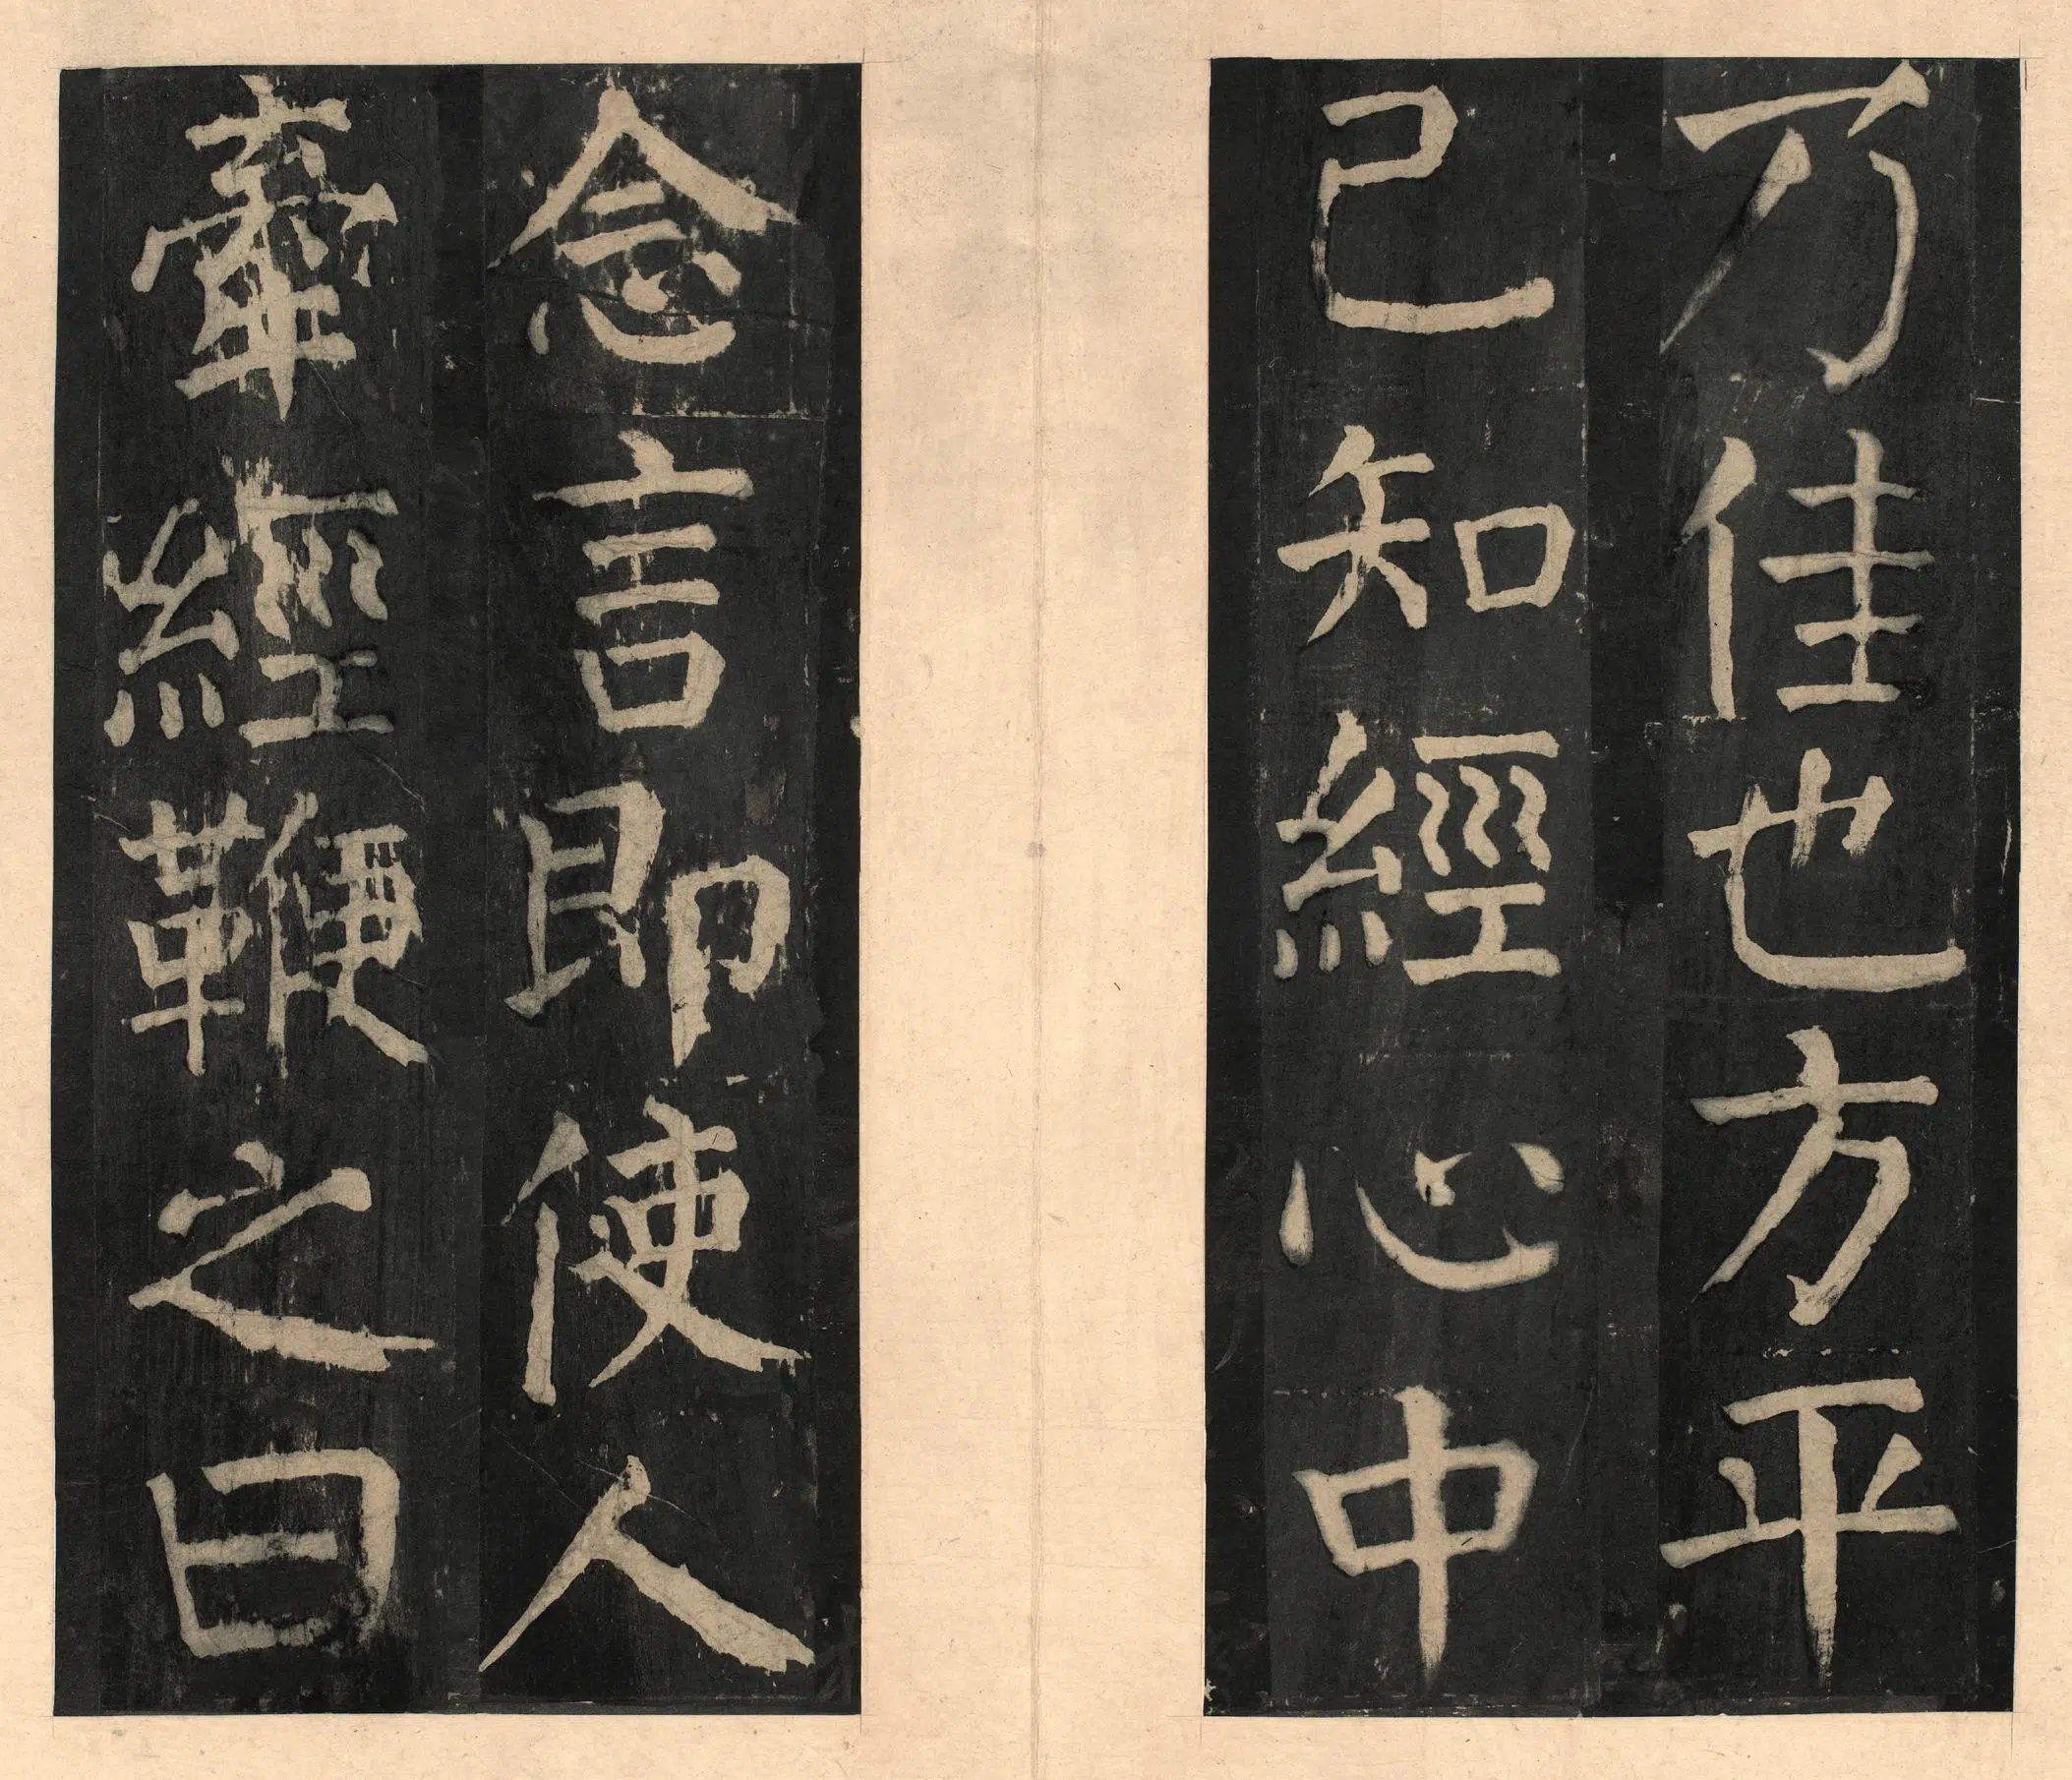 乃佳也方平
已知經心中
念言即使人
牽經鞭之曰